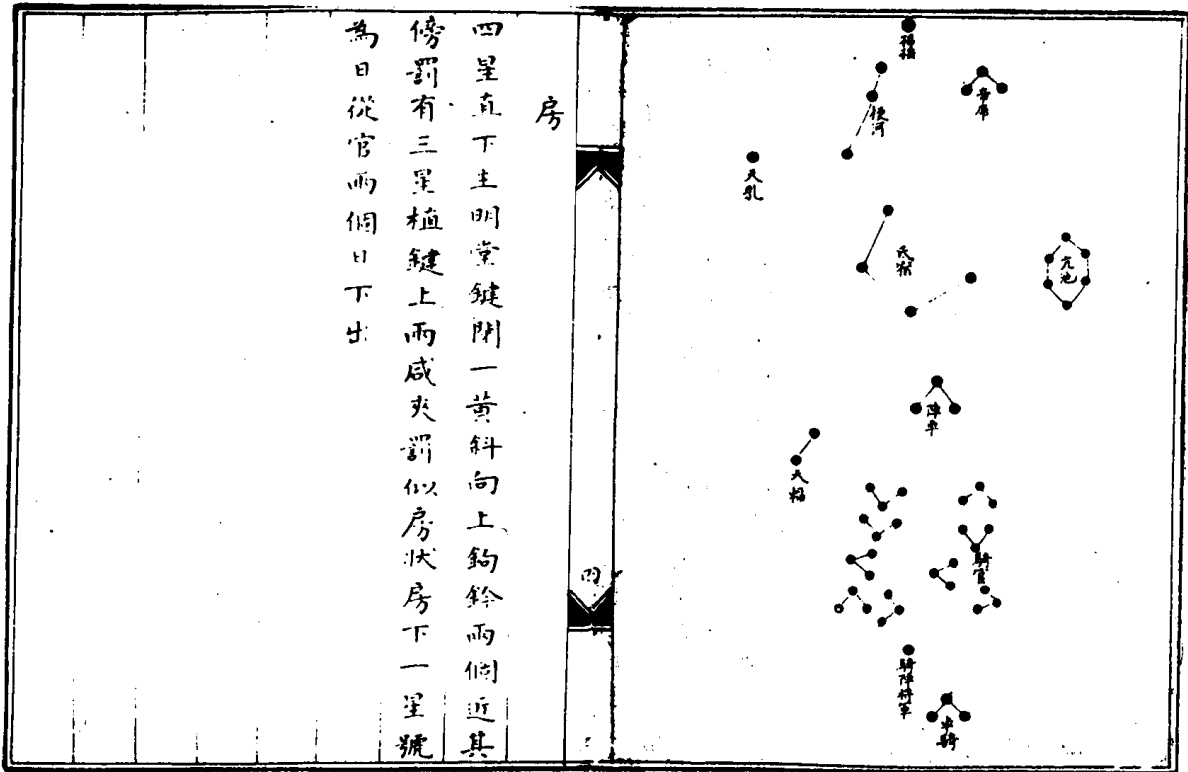 招搖
帝席
梗河
天乳
氐宿
亢池
陣車
天輻
騎官
騎陣將軍
車騎
四
房
四星直下主明堂鍵閉一黃斜向上鉤鈐兩個近其
傍罰有三星植鍵上兩咸夾罰似房狀房下一星號
為日從官兩個日下出